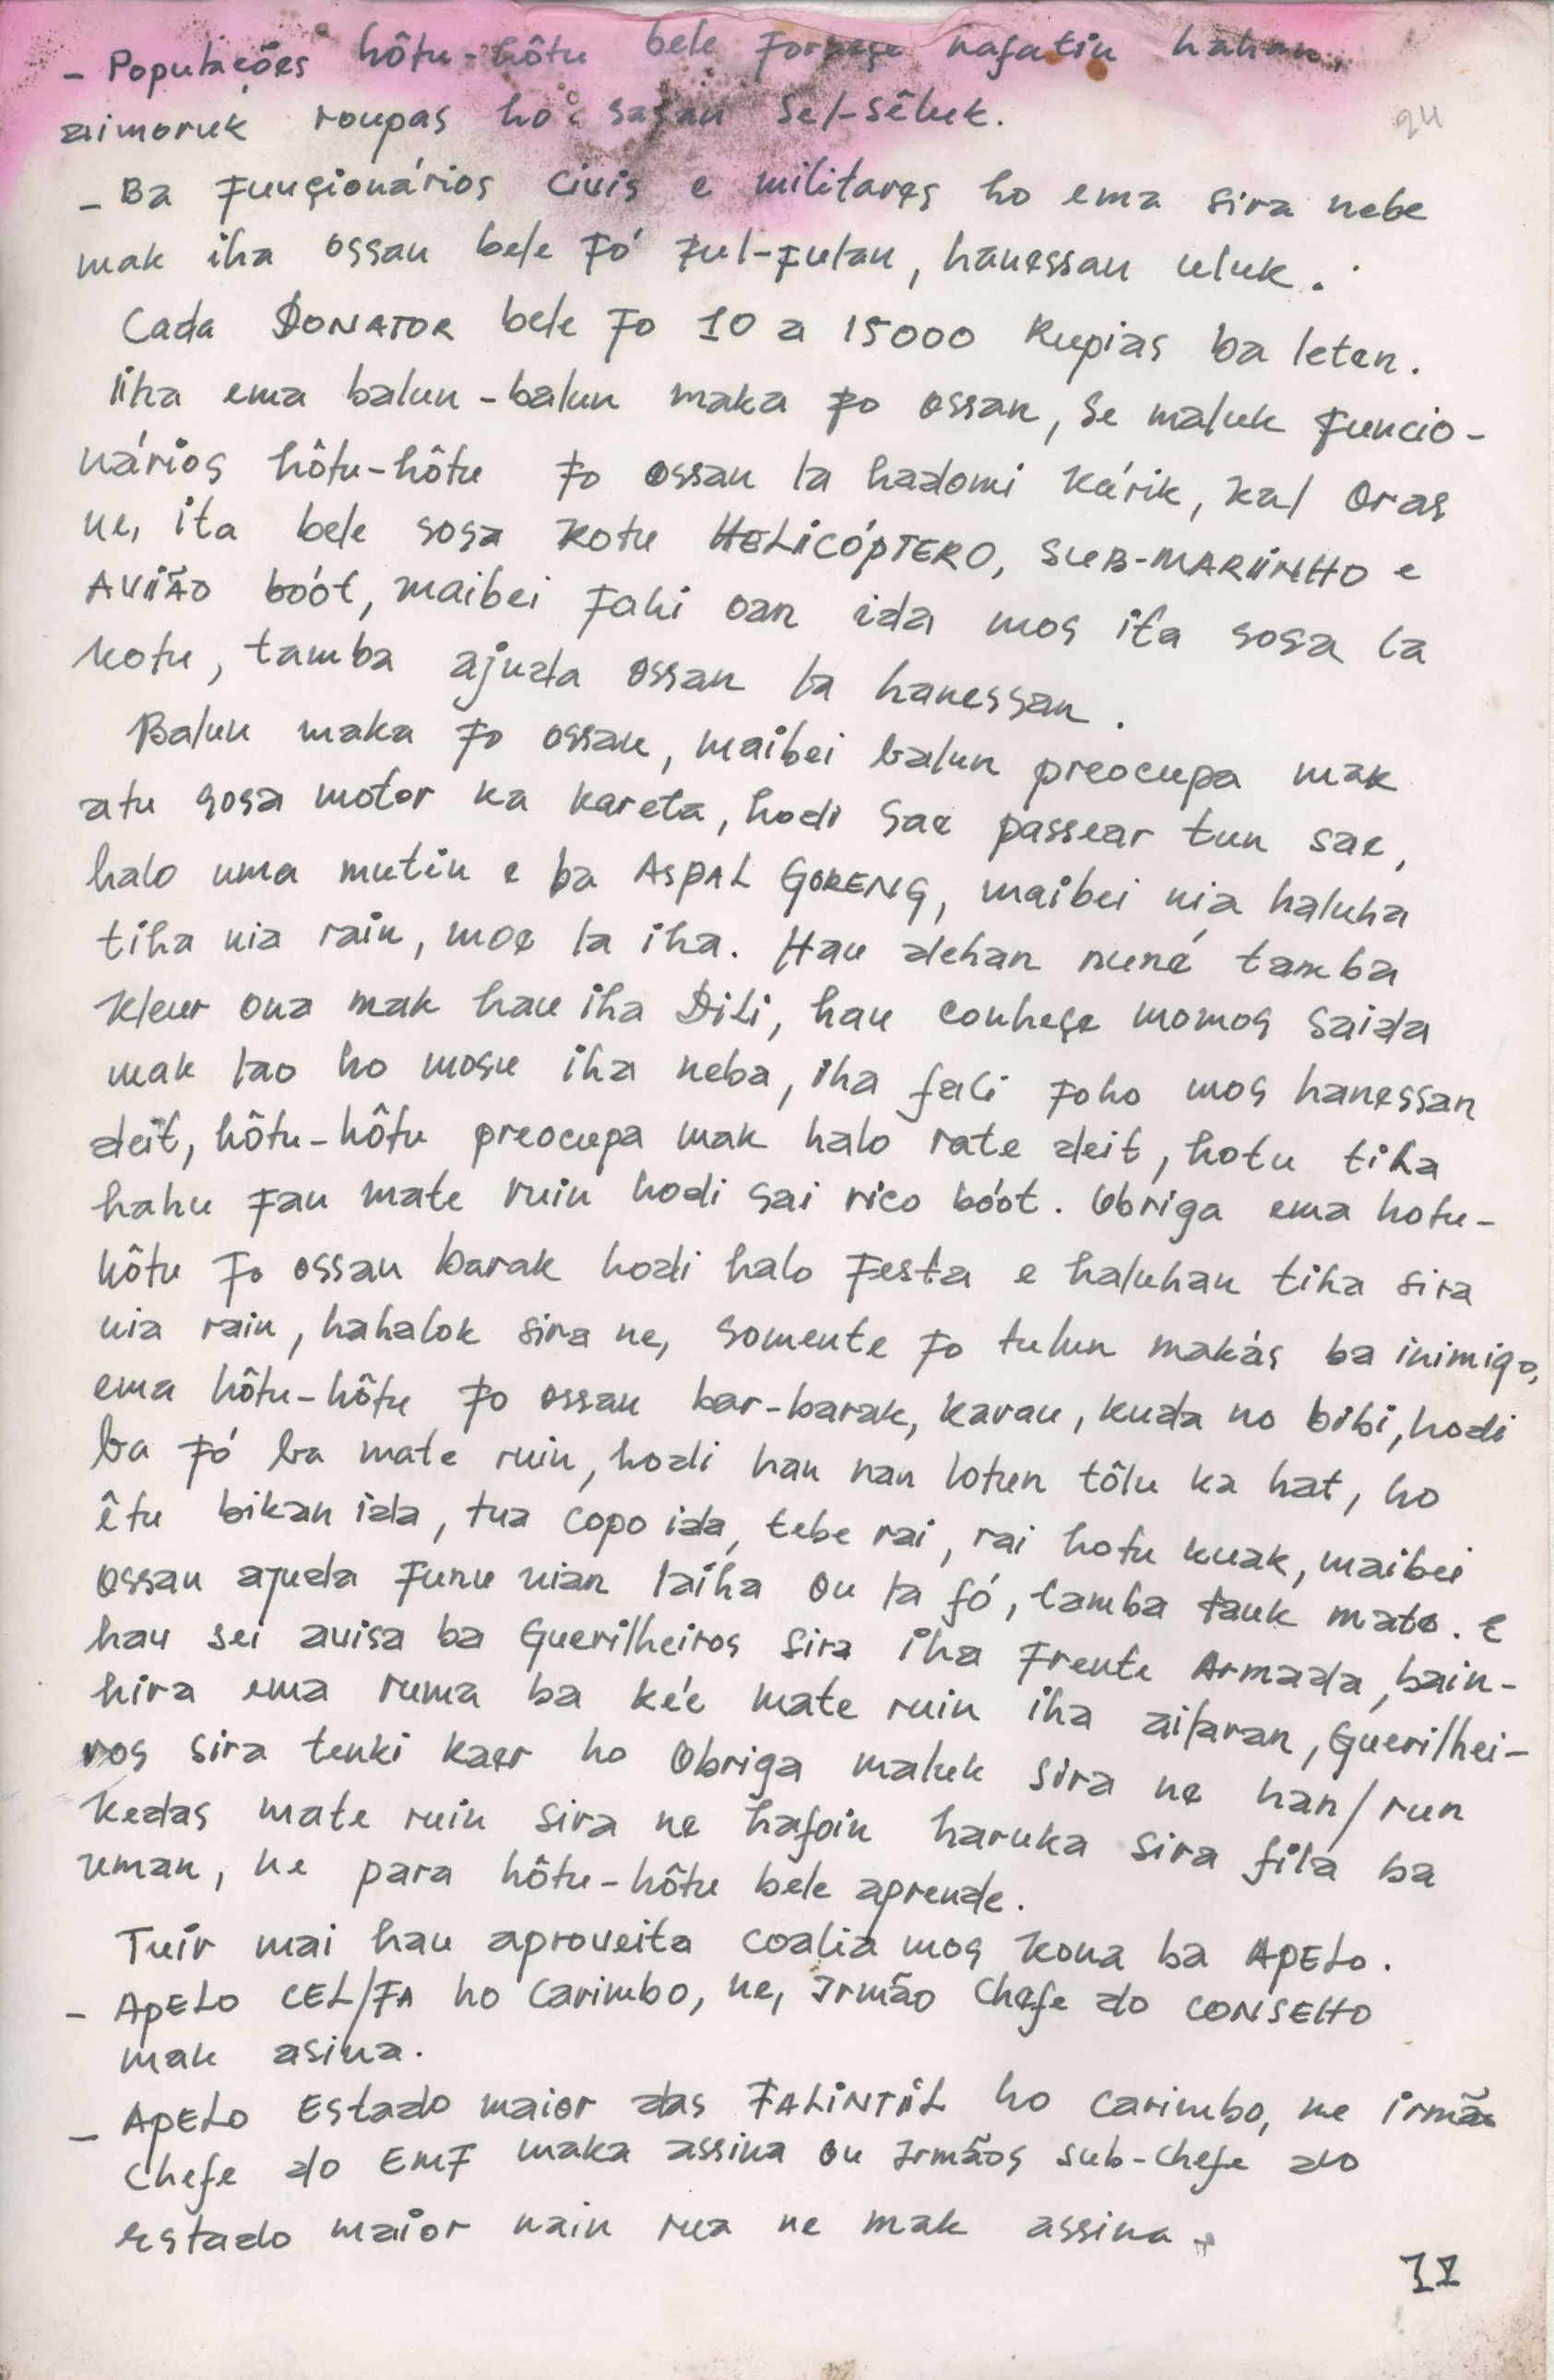 - Populações hôtu-hôtu bele forneçe nafatin hahan,
aimoruk roupas ho sasan sel-sêluk.
24
- Ba Funçionários civis e militares ho ema sira nebe
mak iha ossan bele fó ful-fulan, hanessan uluk.
Cada DONATOR bele fo 10 a 15000 Rupias ba leten.
Iiha ema balun-balun maka fo ossan, se maluk funcio-
nários hôtu-hôtu fo ossan la hadomi kárik, kal oras
ne, ita bele sosa kotu HELICÓPTERO, SUB-MARIINHO e
AVIÃO bóót, maibei fahi oan ida mos ita sosa la
kotu, tamba ajuda ossan la hanessan.
Balun maka fo ossan, maibei balun preocupa mak
atu sosa motor ka kareta, hodi sae passear tun sae,
halo uma mutin e ba ASPAL GORENG, maibei nia haluha
tiha nia rain, moe la iha. Hau dehan nuné tamba
kleur ona mak hau iha Dili, hau conheçe momos saida
mak lao ho mosu iha neba, iha fali foho mos hanessan
deit, hôtu-hôtu preocupa mak halo rate deit, hotu tiha
hahu fau mate ruin hodi sai rico bóót. Obriga ema hotu-
hôtu fo ossan barak hodi halo festa e haluhan tiha sira
nia rain, hahalok sira ne, somente fo tulun makás ba inimigo,
ema hôtu-hôtu fo ossan bar-barak, karau, kuda no bibi, hodi
ba fó ba mate ruin, hodi han nan lotun tôlu ka hat, ho
êtu bikan ida, tua copo ida, tebe rai, rai hotu kuak, maibei
ossan ajuda funu nian laiha ou la fó, tamba tauk mate. e
hau sei avisa ba Guerilheiros sira iha Frente Armada, bain-
hira ema ruma ba ké'e mate ruin iha ailaran, Guerilhei-
ros sira tenki kaer ho obriga maluk sira ne han/run
kedas mate ruin sira ne hafoin haruka sira fila ba
uman, ne para hôtu-hôtu bele aprende.
Tuir mai hau aproveita coalia mos kona ba APELO.
- APELO CEL/FA ho Carimbo, ne, Irmão Chefe do CONSELHO
mak asina.
- APELO Estado maior das FALINTIL ho carimbo, ne irmão
Chefe do EMF maka assina ou Irmãos sub-chefe do
estado maior nain rua ne mak assina.
11